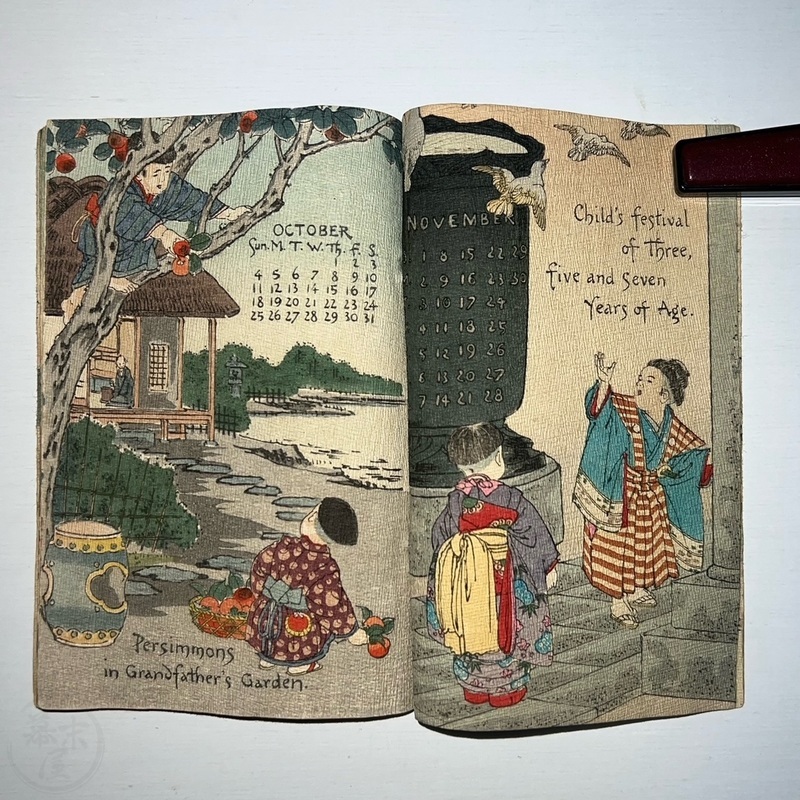 OCTOBER
Sun. M. T. W. Th. F. S.
1 2 3
4 5 6 7 8 9 10
11 12 13 14 15 16 17
18 19 20 21 22 23 24
25 26 27 28 29 30 31
Persimmons
in Grandfather's Garden.
NOVEMBER
1 8 15 22 29
2 9 16 23 30
3 10 17 24
4 11 18 25
5 12 19 26
6 13 20 27
7 14 21 28
Child's festival
of Three,
five and Seven
Years of Age.